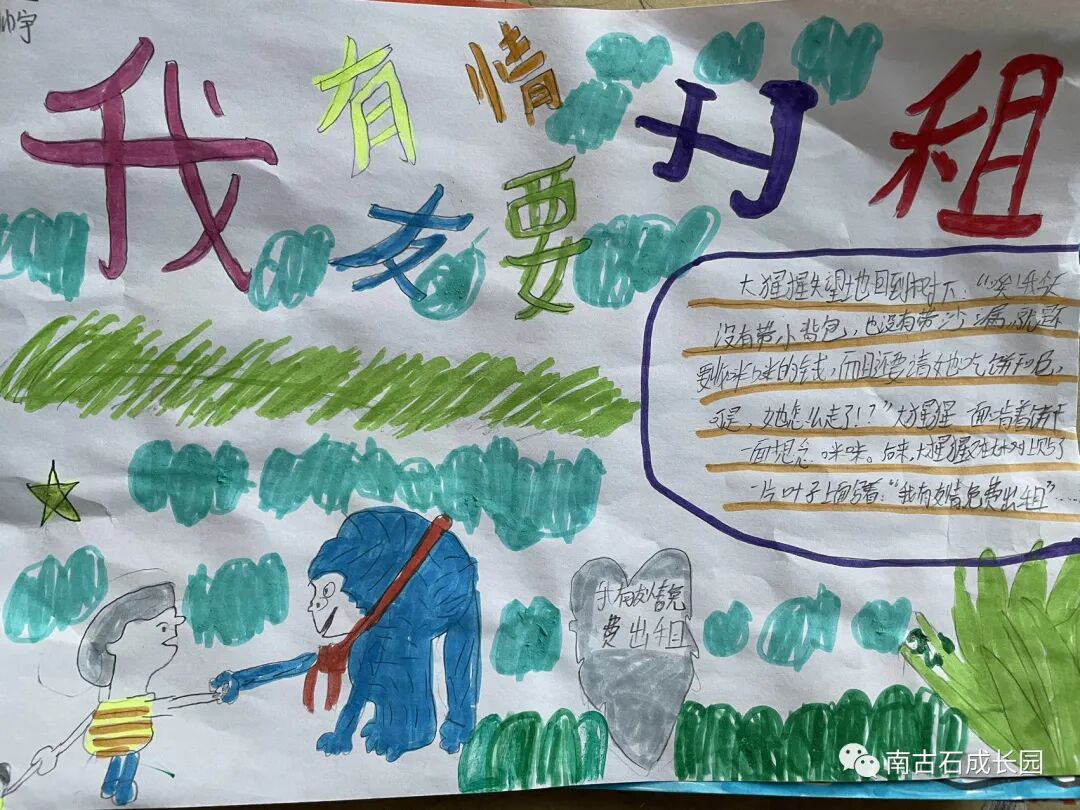 帅宇
我有友情要出租
大猩猩失望地回到树下："唉我今天
没有带小背包，也没有带沙漏，就
的钱，而且还要请她吃饼干
可是，她怎么走了！？"大猩猩一面啃着饼干
一面想念咪咪。后来，大猩猩在大树上贴了
一片叶子上面写着："我有友情免费出租"……
我有友情免
费出租
南古石成长园